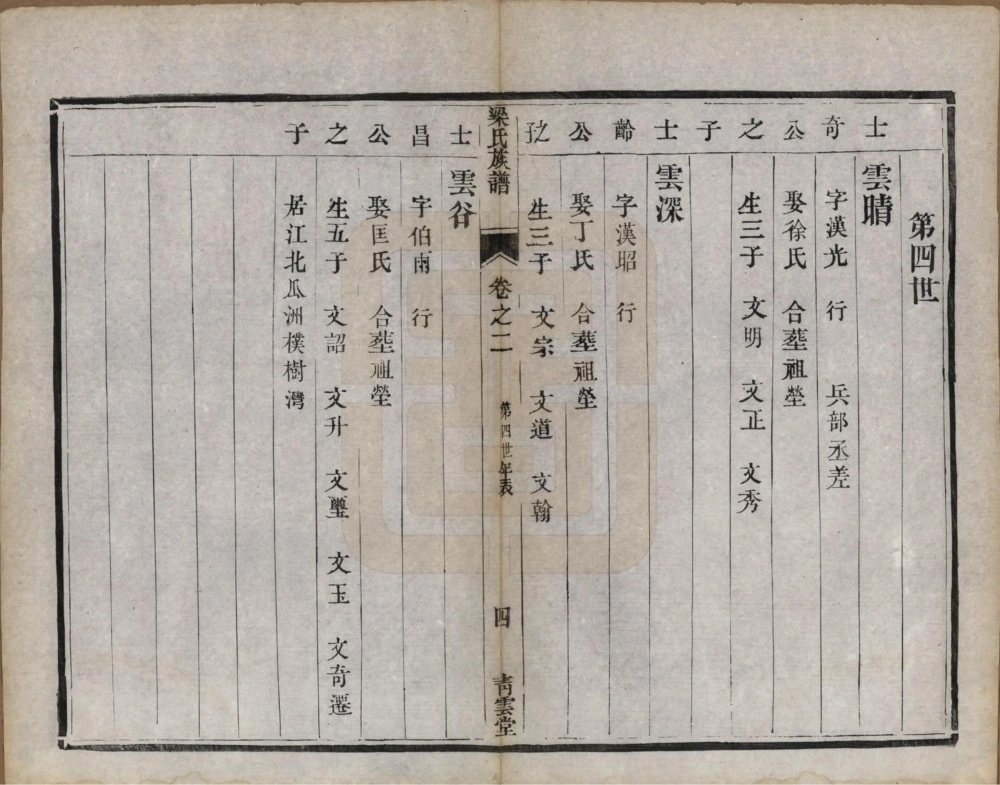 第四世
士奇公之子
雲晴
字漢光 行 兵部丞差
娶徐氏 合塟祖塋
生三子 文明 文正 文秀
士齡公之子
雲深
字漢昭 行
娶丁氏 合塟祖塋
生三子 文宗 文道 文翰
梁氏族譜 卷之二 第四世年表 四 青雲堂
士昌公之子
雲谷
字伯雨 行
娶匡氏 合塟祖塋
生五子 文詔 文升 文璽 文玉 文奇遷
居江北瓜洲樸樹灣